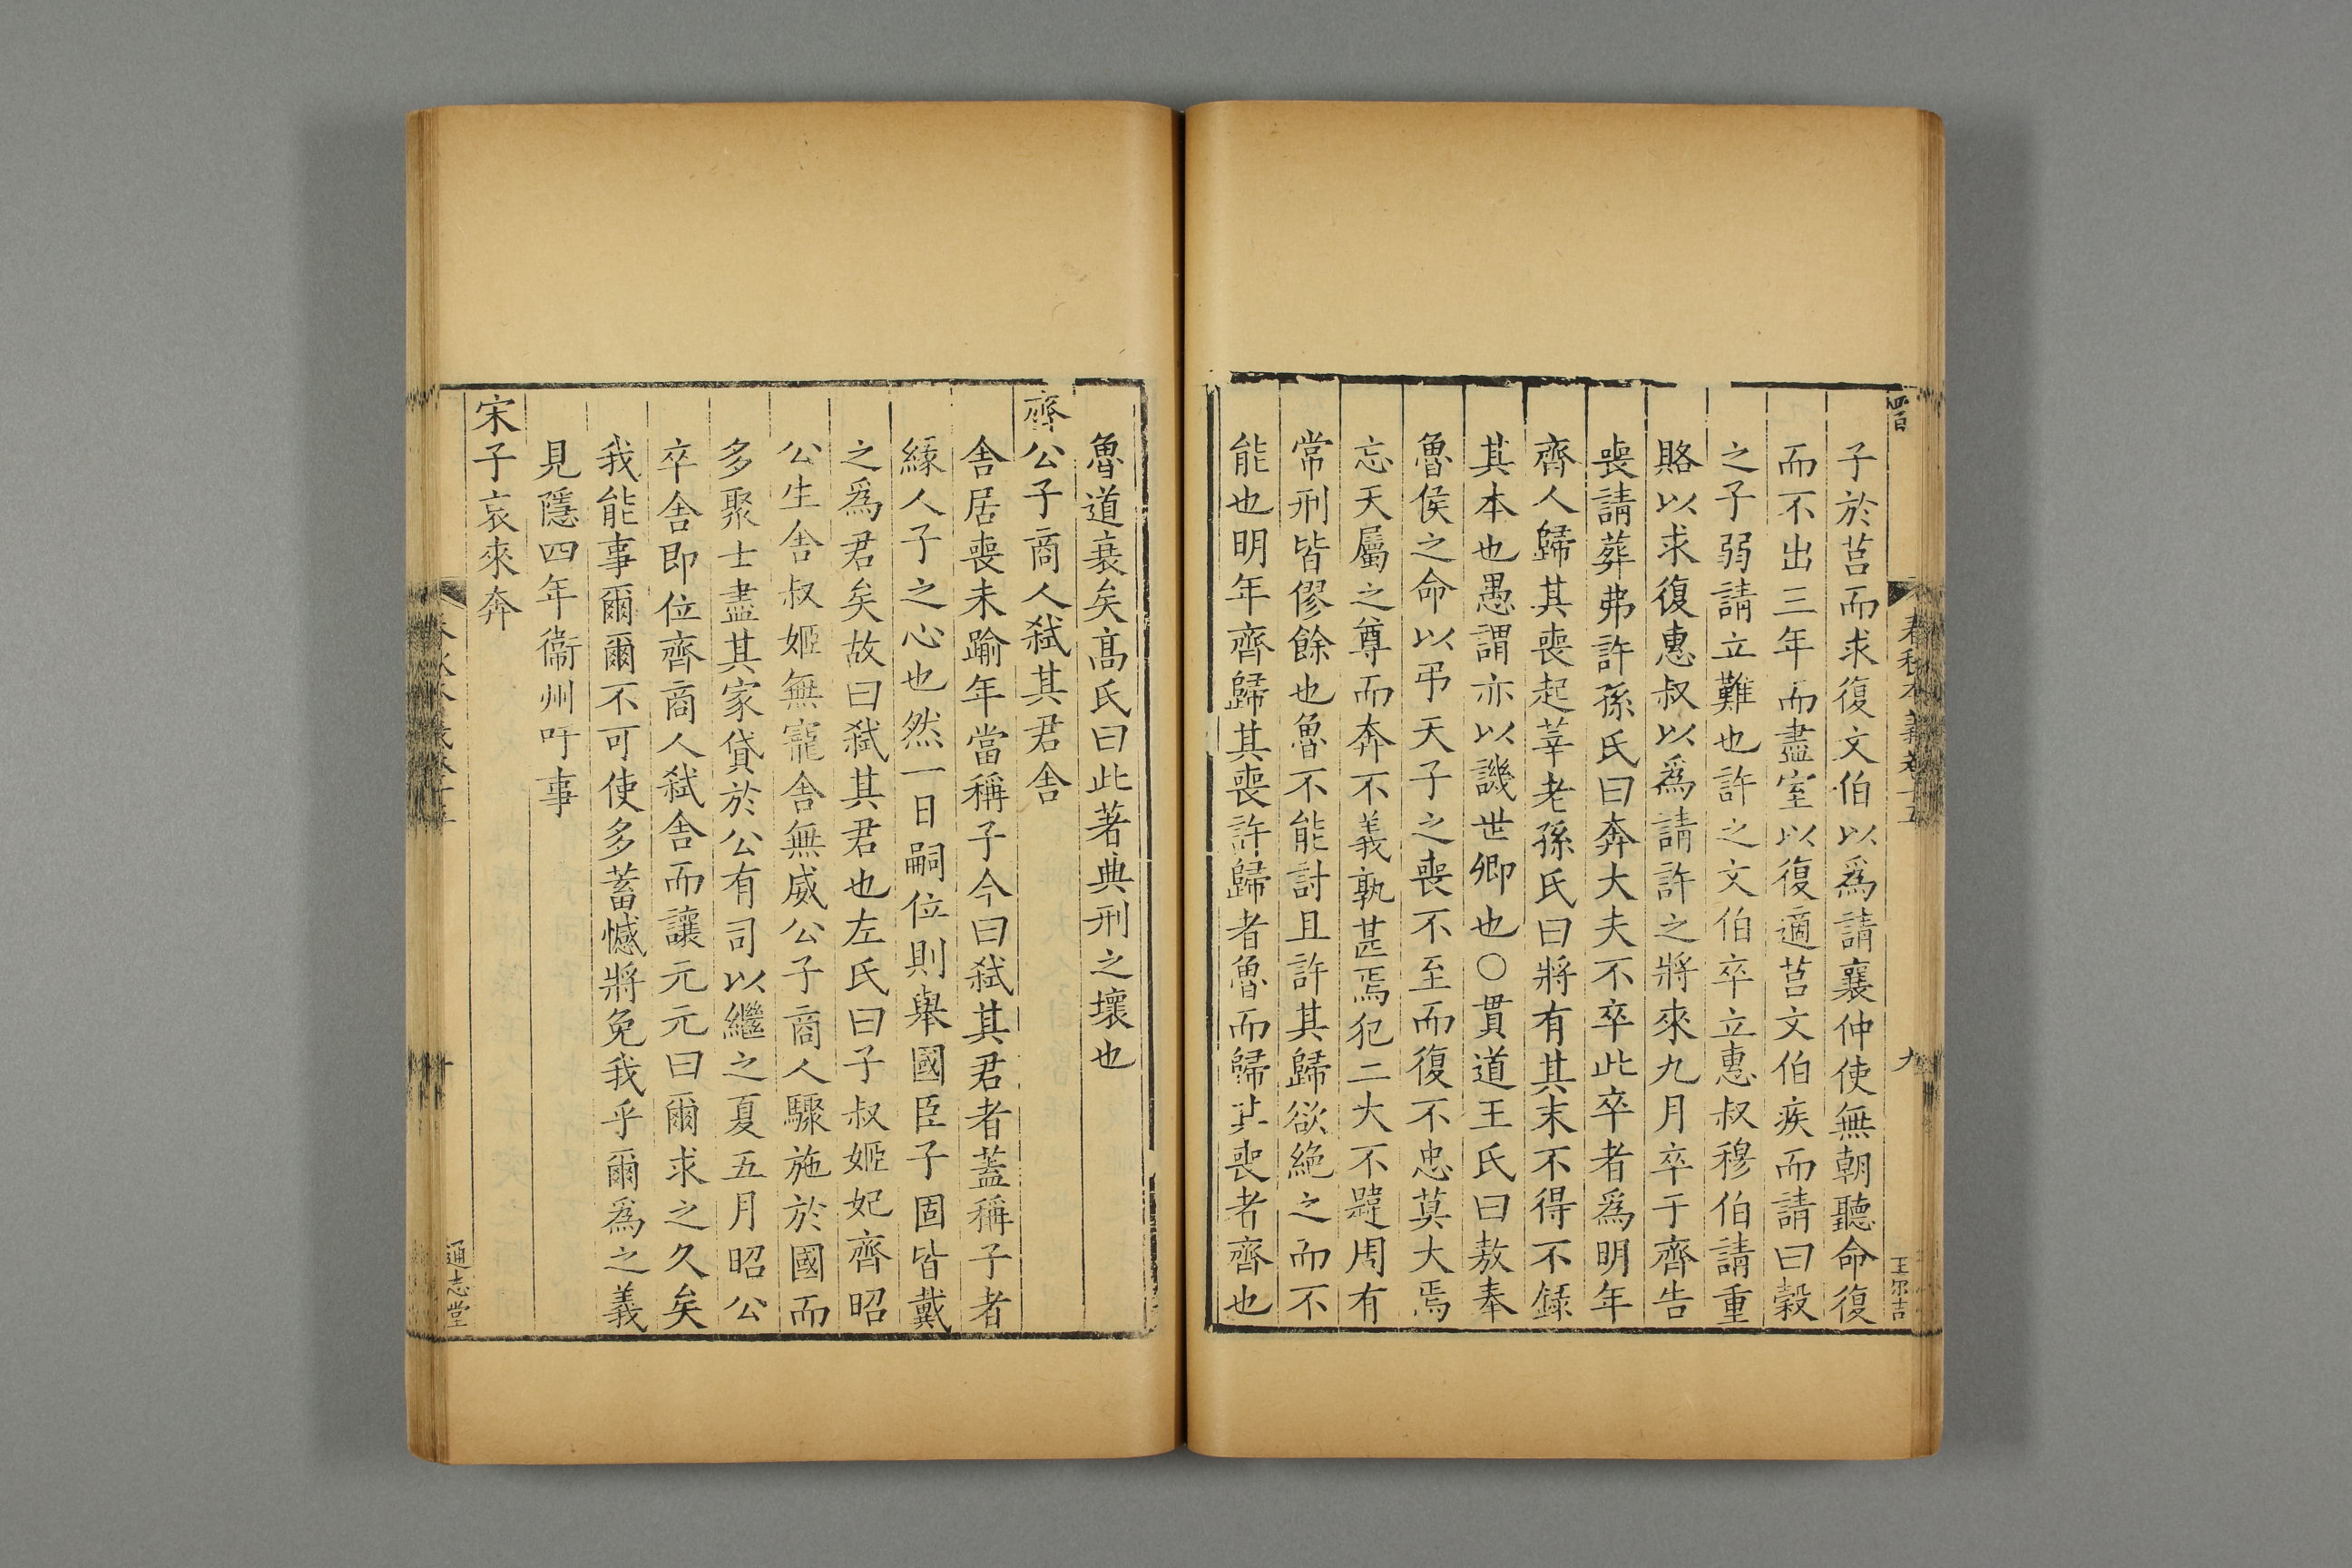 春秋本義卷十五
九
王尔吉
子於莒而求復文伯以爲請襄仲使無朝聽命復
而不出三年而盡室以復適莒文伯疾而請曰穀
之子弱請立難也許之文伯卒立惠叔穆伯請重
賂以求復惠叔以爲請許之將來九月卒于齊告
喪請葬弗許孫氏曰奔大夫不卒此卒者爲明年
齊人歸其喪起莘老孫氏曰將有其末不得不錄
其本也愚謂亦以譏世卿也○貫道王氏曰敖奉
魯侯之命以弔天子之喪不至而復不忠莫大焉
忘天屬之尊而奔不義孰甚焉犯二大不韙周有
常刑皆僇餘也魯不能討且許其歸欲絶之而不
能也明年齊歸其喪許歸者魯而歸其喪者齊也
魯道衰矣高氏曰此著典刑之壞也
齊公子商人弑其君舍
舍居喪未踰年當稱子今曰弑其君者蓋稱子者
緣人子之心也然一日嗣位則舉國臣子固皆戴
之爲君矣故曰弑其君也左氏曰子叔姬妃齊昭
公生舍叔姬無寵舍無威公子商人驟施於國而
多聚士盡其家貸於公有司以繼之夏五月昭公
卒舍即位齊商人弑舍而讓元元曰爾求之久矣
我能事爾爾不可使多蓄憾將免我乎爾爲之義
見隱四年衞州吁事
宋子哀來奔
通志堂